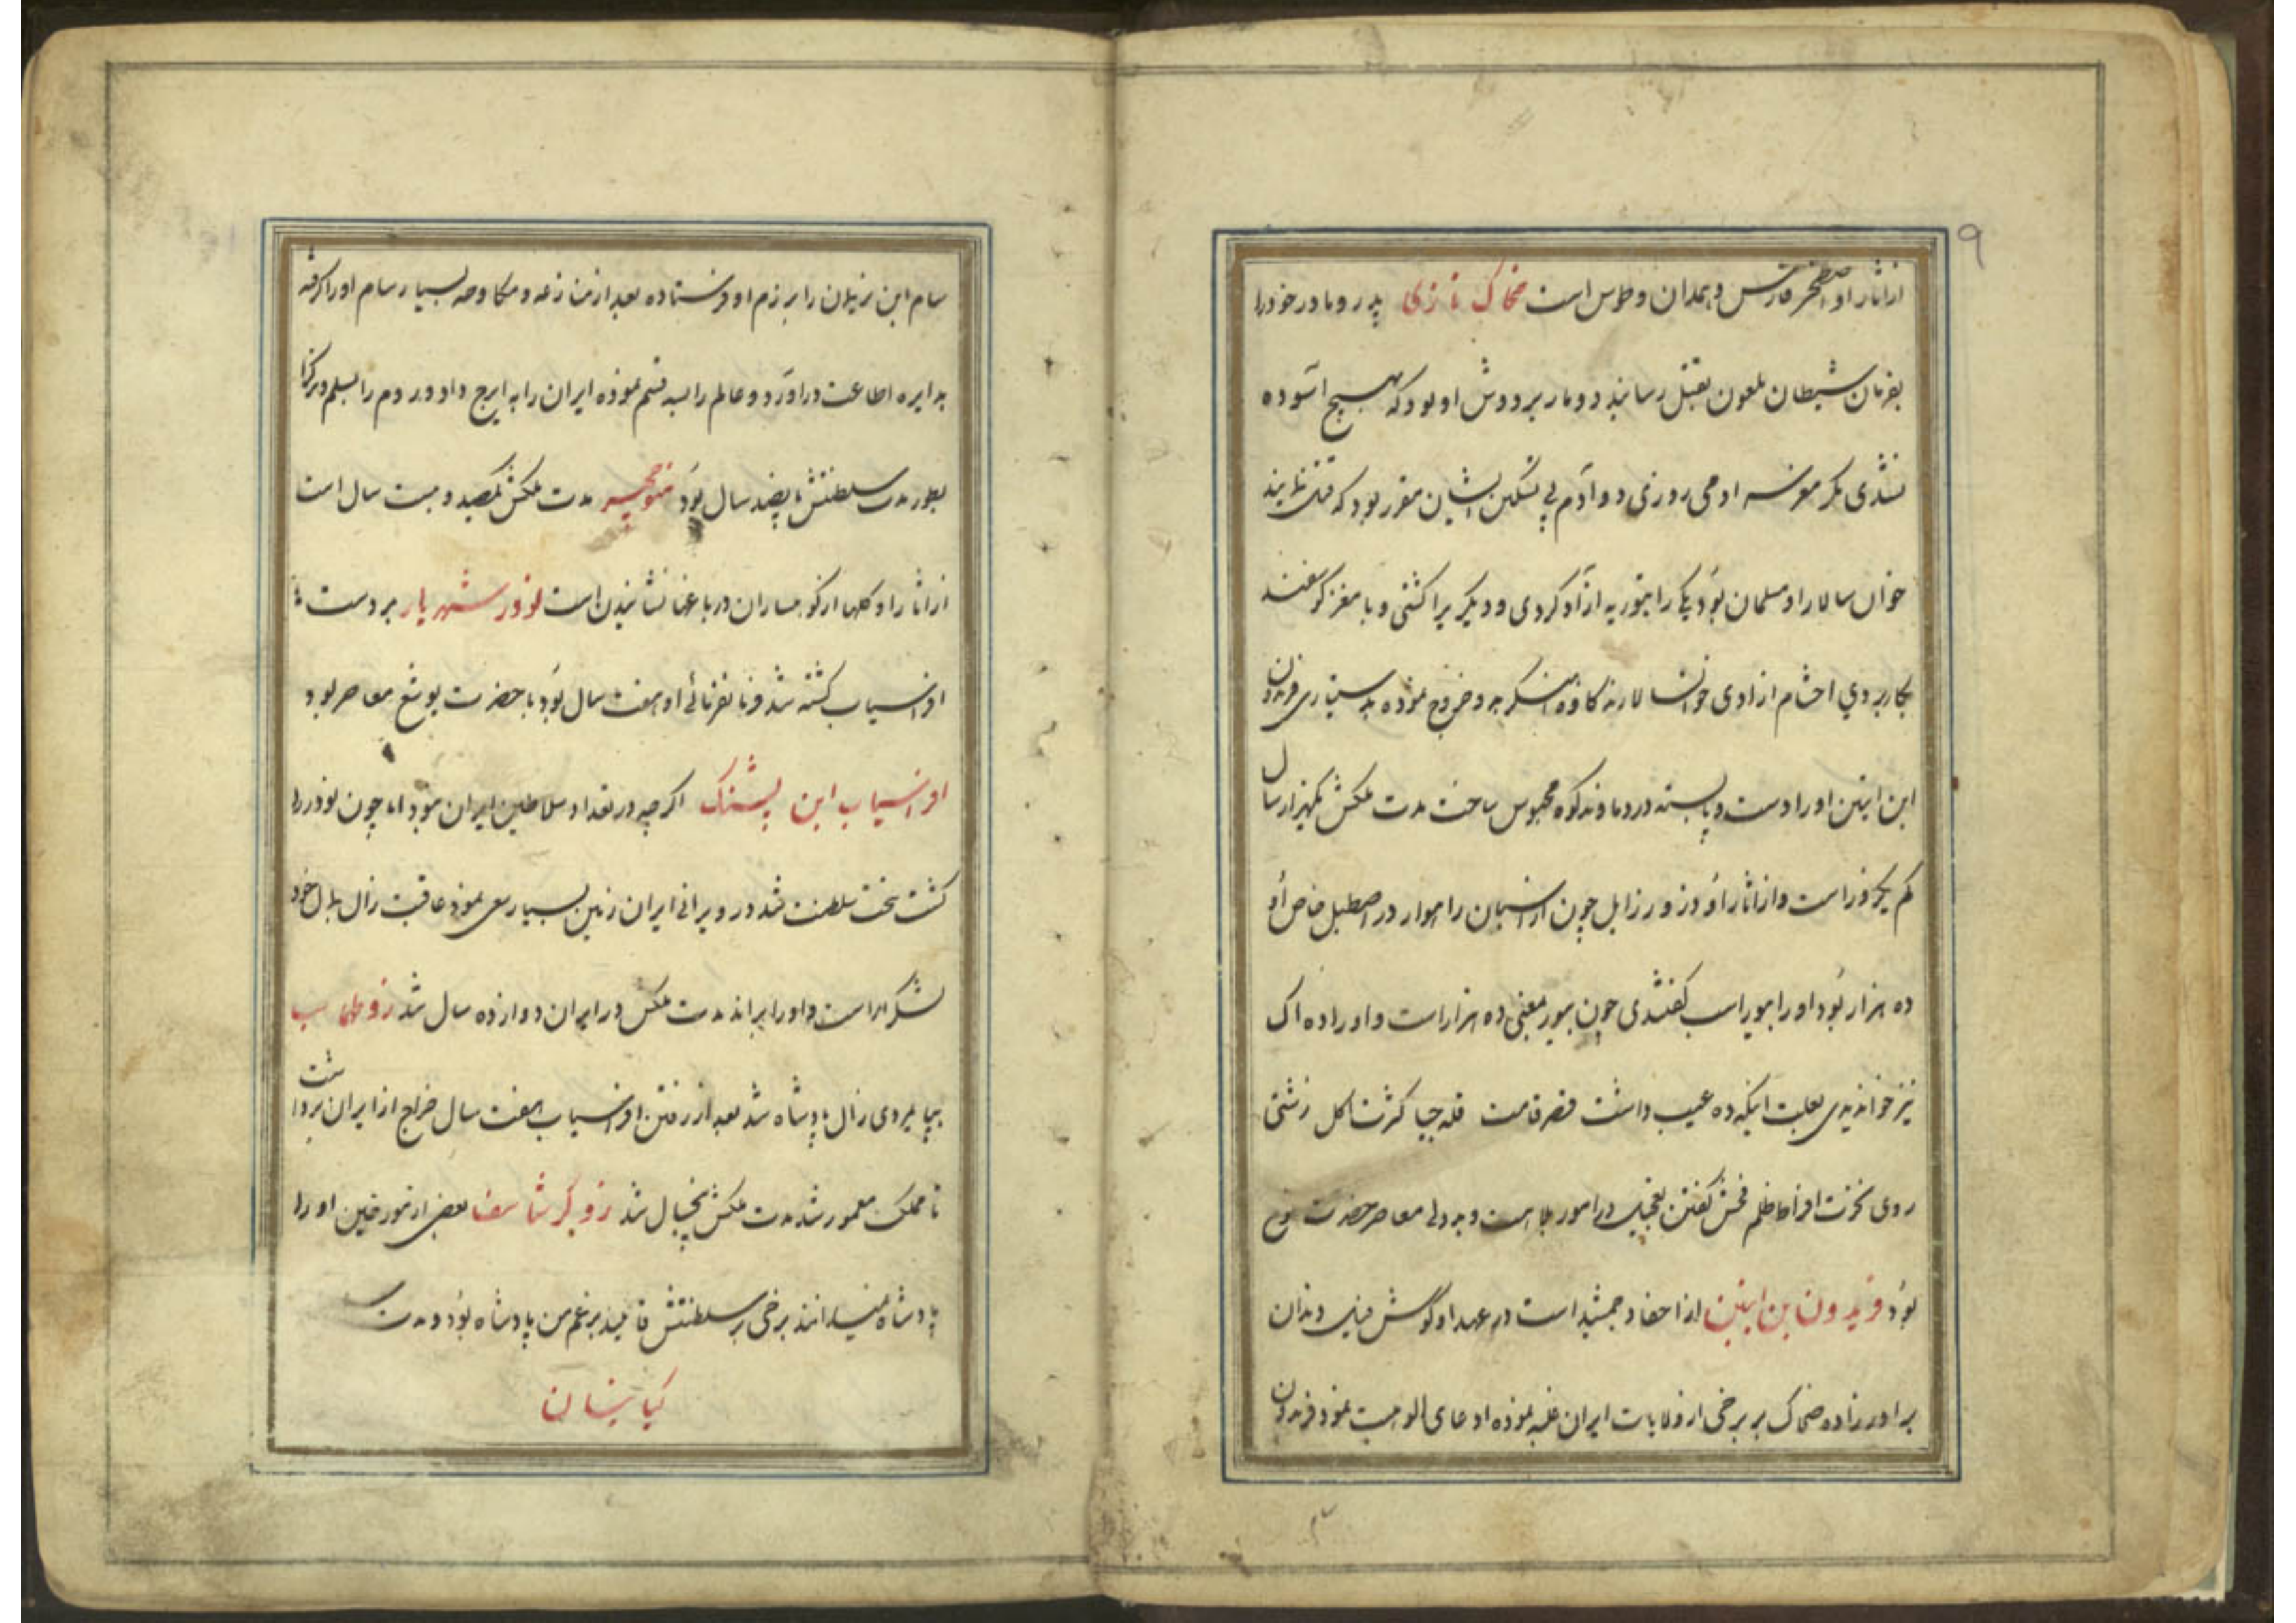 ۹
ازاثار او اصطخر فارس و همدان و طوس است ضحاک تازی پدر و مادر خود را
بفرمان شیطان ملعون بقتل رسانید دو مار بر دوش او بود که هیچ آسوده
نشدی مکر مغز سه ادمی روزی دو آدم پی تسکین ایشان مقرر بود که قتل نمایند
خوان سالار او مسلمان بود یکی را بتوریه ازاد کردی و دیکریرا کشتی و با مغز کوسفند
بکار بردی احشام ازادی خوانسالارند کاوه آهنکر برو خروج نموده بدستیاری فریدون
ابن ابتین اورا دست و پا بسته در دماوند کوه محبوس ساخت مدت ملکش یکهزار سال
کم یکروز است و ازاثار او وزور زابل چون از اسبان راهوار در اصطبل خاص او
ده هزار بود اورا بیوراسب کفتندی چون بیور بمعنی ده هزار است و اورا ده اک
نیز خواندندی بعلت اینکه ده عیب داشت قصر قامت قله حیا کثرت اکل زشتی
روی نخوت افراط ظلم فحش کفتن تعجیل در امور بلاهت و بددلی معاصر حضرت نوح
بود فریدون بن ابتین از احفاد جمشید است در عهد او کوش فیل دندان
برادر زاده ضحاک بر برخی از ولایات ایران غلبه نموده ادعای الوهیت نمود فریدون
سام ابن نریمان را برزم او فرستاده بعد از منازعه و مکاوحه بسیار سام اورا کرفته
بدایره اطاعت دراورد و عالم را بسه قسم نموده ایران را به ایرج داد و روم را بسلم و ترکرا
بطور مدت سلطنتش پانصد سال بود منوچهر مدت ملکش یکصد و بیست سال است
ازاثار او کلها از کوهساران در باغها نشانیدن است نوذر شهریار بر دست
افراسیاب کشته شد فرمانفرمائی او هفت سال بود با حضرت یوشع معاصر بود
افراسیاب ابن پشنک اکرچه در تعداد سلاطین ایران نبود اما چون نوذر را
کشت بتخت سلطنت شد در ویرانی ایران زمین بسیار سعی نمود عاقبت زال بلال خود
لشکر اراست و اورا براند مدت ملکش در ایران دوازده سال شد زو طهماسب
بپایمردی زال پادشاه شد بعد از رفتن افراسیاب هفت سال خراج از ایران برداشت
تا مملکت معمور شد مدت ملکش پنجسال شد زو کرشاسف بعضی از مورخین اورا
پادشاه نمیدانند برخی بر سلطنتش قایلند بزعم من پادشاه بود و مدت
کیانیان